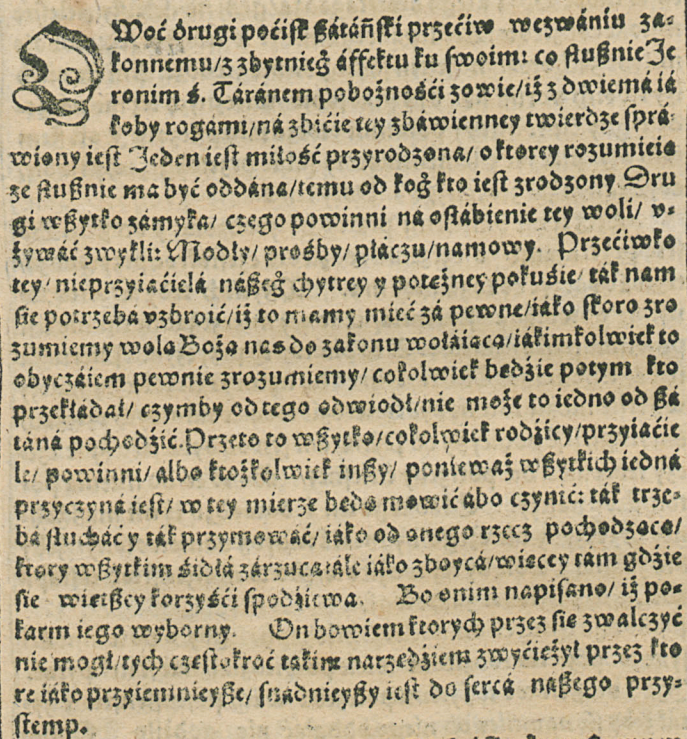 DWoć drugi poćisk ßátáński przećiw wezwániu zá-
konnemu/z zbytnieg̊ áffektu ku swoim: co słußnie Je
ronim ś. Táránem pobożnośći zowie/iż z dwiemá iá
koby rogámi/ná zbićie tey zbáwienney twierdze sprá-
wiony iest Jeden iest miłość przyrodzona/ o ktorey rozumieią
że słußnie ma być oddána/temu od kog̊ kto iest zrodzony. Dru
gi wßytko zámyka/ czego powinni ná osłábienie tey woli/ v-
żywáć zwykli: Modły/ prośby/ płáczu/námowy. Przećiwko
tey/ nieprzyiaćielá náßeg̊ chytrey y potężney pokuśie/ ták nam
sie potrzebá vzbroić/iż to mamy mieć zá pewne/iáko skoro zro
zumiemy wolą Bożą nas do zakonu wołáiącą/iákimkolwiek to
obyczáiem pewnie zrozumiemy/ cokolwiek będźie potym kto
przekłádał/ czymby od tego odwiodł/nie może to iedno od ßá
táná pochodźić. Przeto to wßytko/cokolwiek rodźicy/przyiaćie
le/ powinni/ albo ktożkolwiek inßy/ poniewaź wßytkich iedná
przyczyná iest/ w tey mierze będą mowić ábo czynić: ták trze-
bá słucháć y ták przymowáć/ iáko od onego rzecz pochodzącą/
ktory wßytkim śidłá zárzuca: ále iáko zboycá/więcey tám gdźie
sie więtßey korzyśći spodźiewa. Bo o nim nápisano/ iż po-
karm iego wyborny. On bowiem ktorych przez się zwalczyć
nie mogł/tych częstokroć tákim narzędźiem zwyćiężył przez kto
re iáko przyiemnieyße/ snádnieyßy iest do sercá náßego przy-
stęmp.